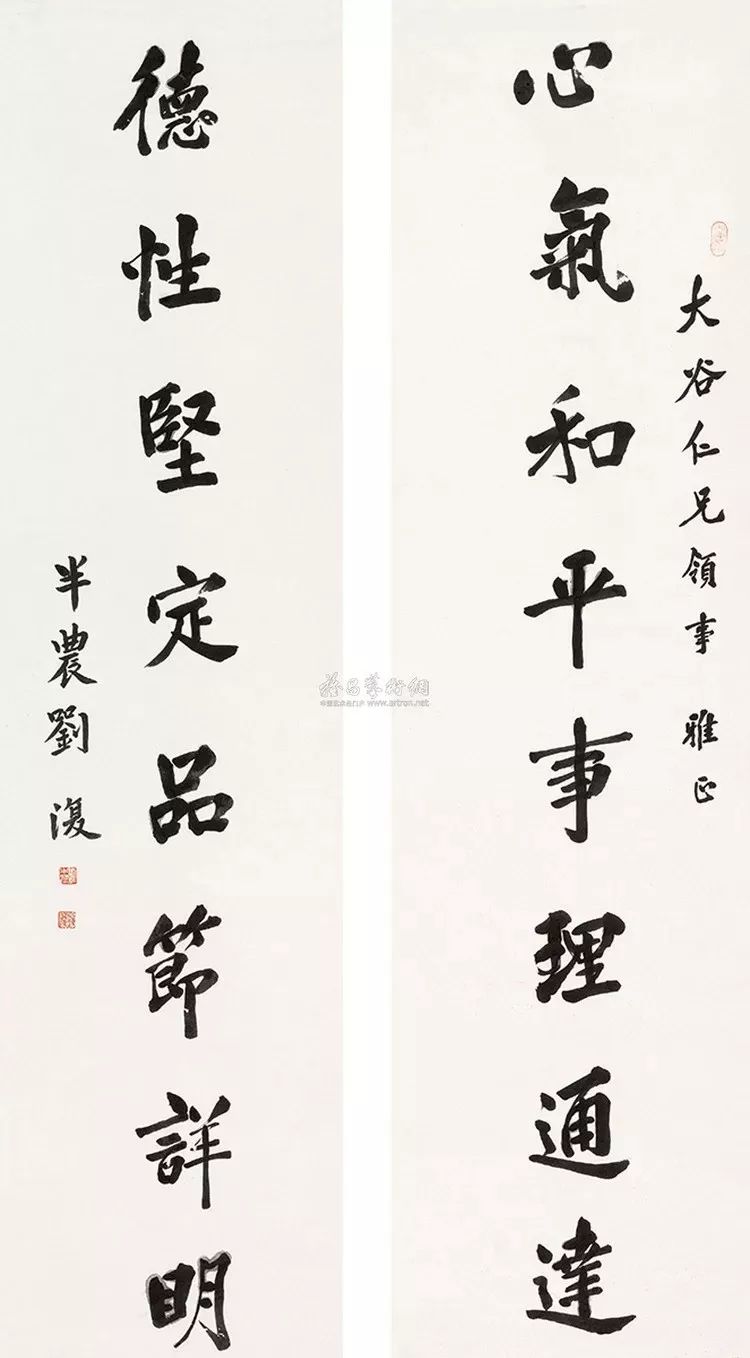 大谷仁兄領事 雅正
心氣和平事理通達
德性堅定品節詳明
半農劉復
www.artron.net